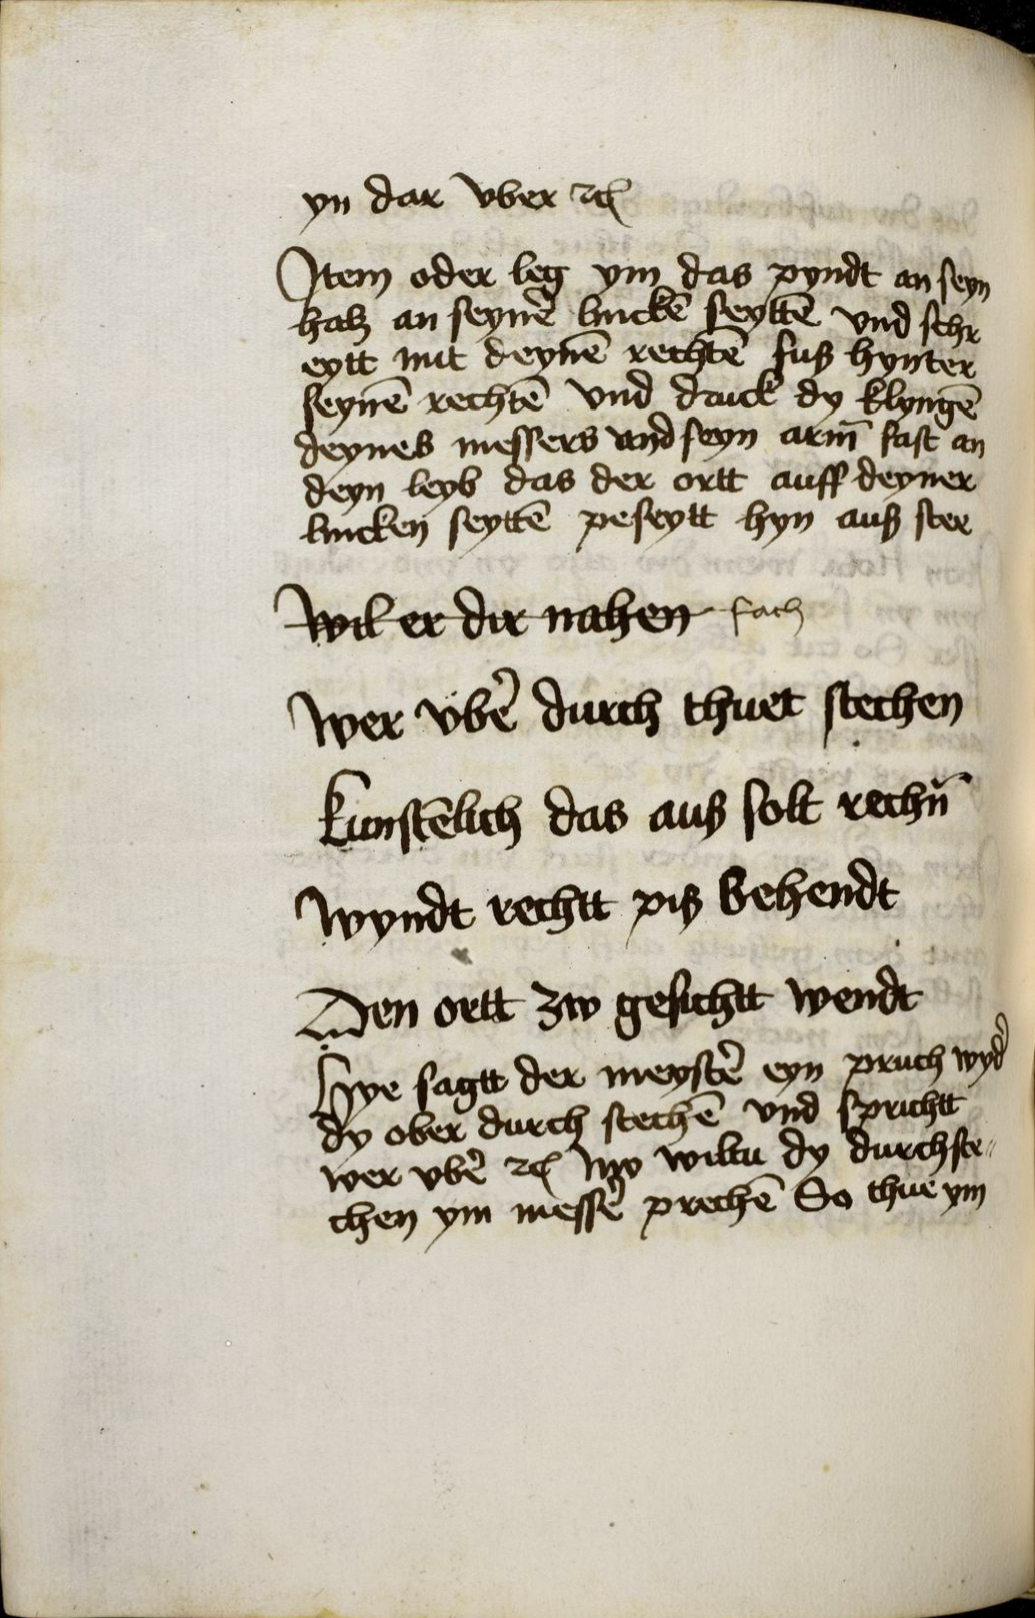 yn dar vber ⁊c̄
Jtem oder leg ym das pyndt an seyn
halß an seynẽ linckē seyttē vnd schr
eytt mit deynē rechtē fuß hynter
seynē rechtē vnd druck dy klyngē
deynes messers vnd seyn arm̄ fast an
deyn leyb das der ortt auff deyner
lincken seyttē peseytt hyn auß stee
Wil er dir nahen fach
Wer vbẽ durch thuet stechen
kunstēlich das auß solt rechn̄
Wyndt rechtt piß behendt
Den ortt zw gesichtt wendt
Hye sagtt der meystẽ eyn pruch wyd̃
dy ober durch stechē vnd sprichtt
wer vbẽ ⁊c̄ Jtm̄ wiltu dy durchste〃
chen ym messẽ prechē So thue ym